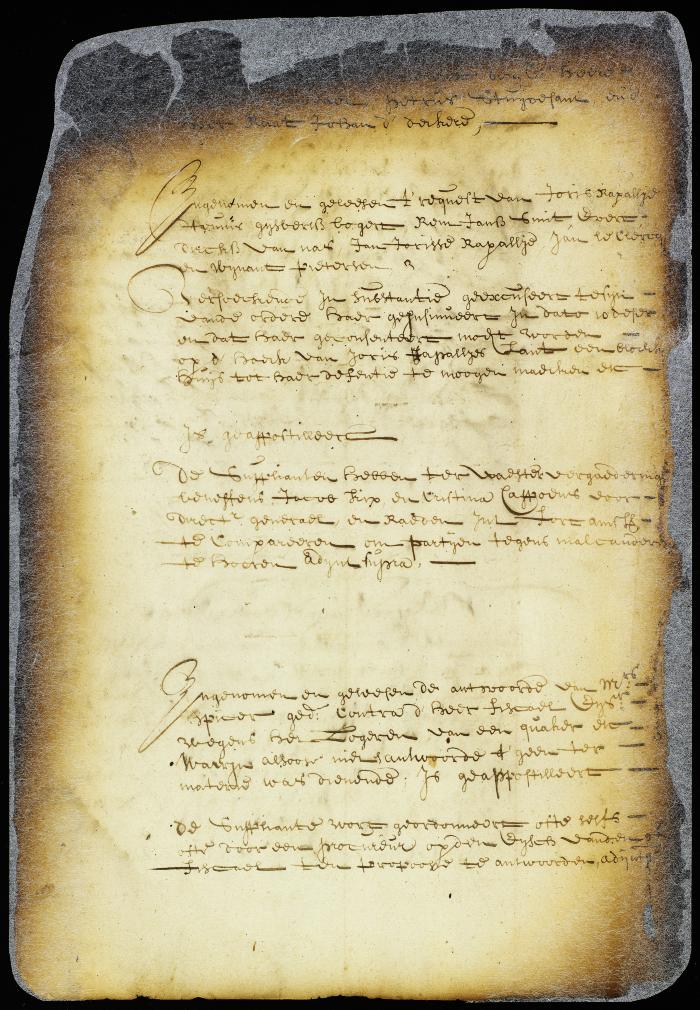 Heere
Petrus Stuyvesant, end
Raat Johan d deckere,
Ingenomen en geleesen t request van Joris Rapallje
Teunis gysbertss bogert Rem Janss Smit Evert
Dirckss van nas, Jan Jorisse Rapallje Jan le Clercq
en Wynant Pietersen
Versoeckende in Substantie geexcuseert te syn
vande ordere haer geinsinueert in dato 10 deser
en dat haer geconsenteert mocht worden
op d hoeck van Joris Rapalljes Lant een block
huys tot haer defentie te moogen maecken etc
Is geappostilleert
De Supplianten hebben ter naester vergaederinge
beneffens Jacob Kip en Cristina Cappoens voor
Directr generael en Raeden int fort amstr
te Compareeren om partyen tegens malcanderen
te hooren Adyut supra.
Ingenomen en geleesen de antwoorde van Mrs
Spicer ged. Contra d heer fiscael Eyssr
wegens het Logeren van een quaker etc
Waerin alsoo niet antwoorde t geen ter
materie was dienende, Is geappostilleert
De Suppliante wort geordonneert ofte selfs
ofte door een procureur op den Eysch vanden
fiscael ten propooste te antwoorden,